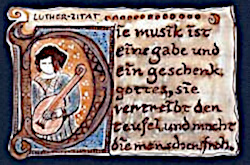 LUTHER-ZITAT
Die musik ist
eine gabe und
ein geschenk
gottes, sie
vertreibt den
teufel, und macht
die menschen froh.